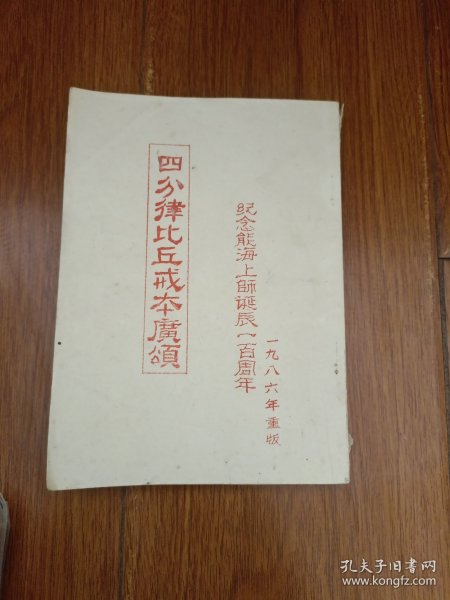 四分律比丘戒本廣頌
纪念能海上師诞辰一百周年
一九八六年重版
孔夫子旧书网
www.kongfz.com